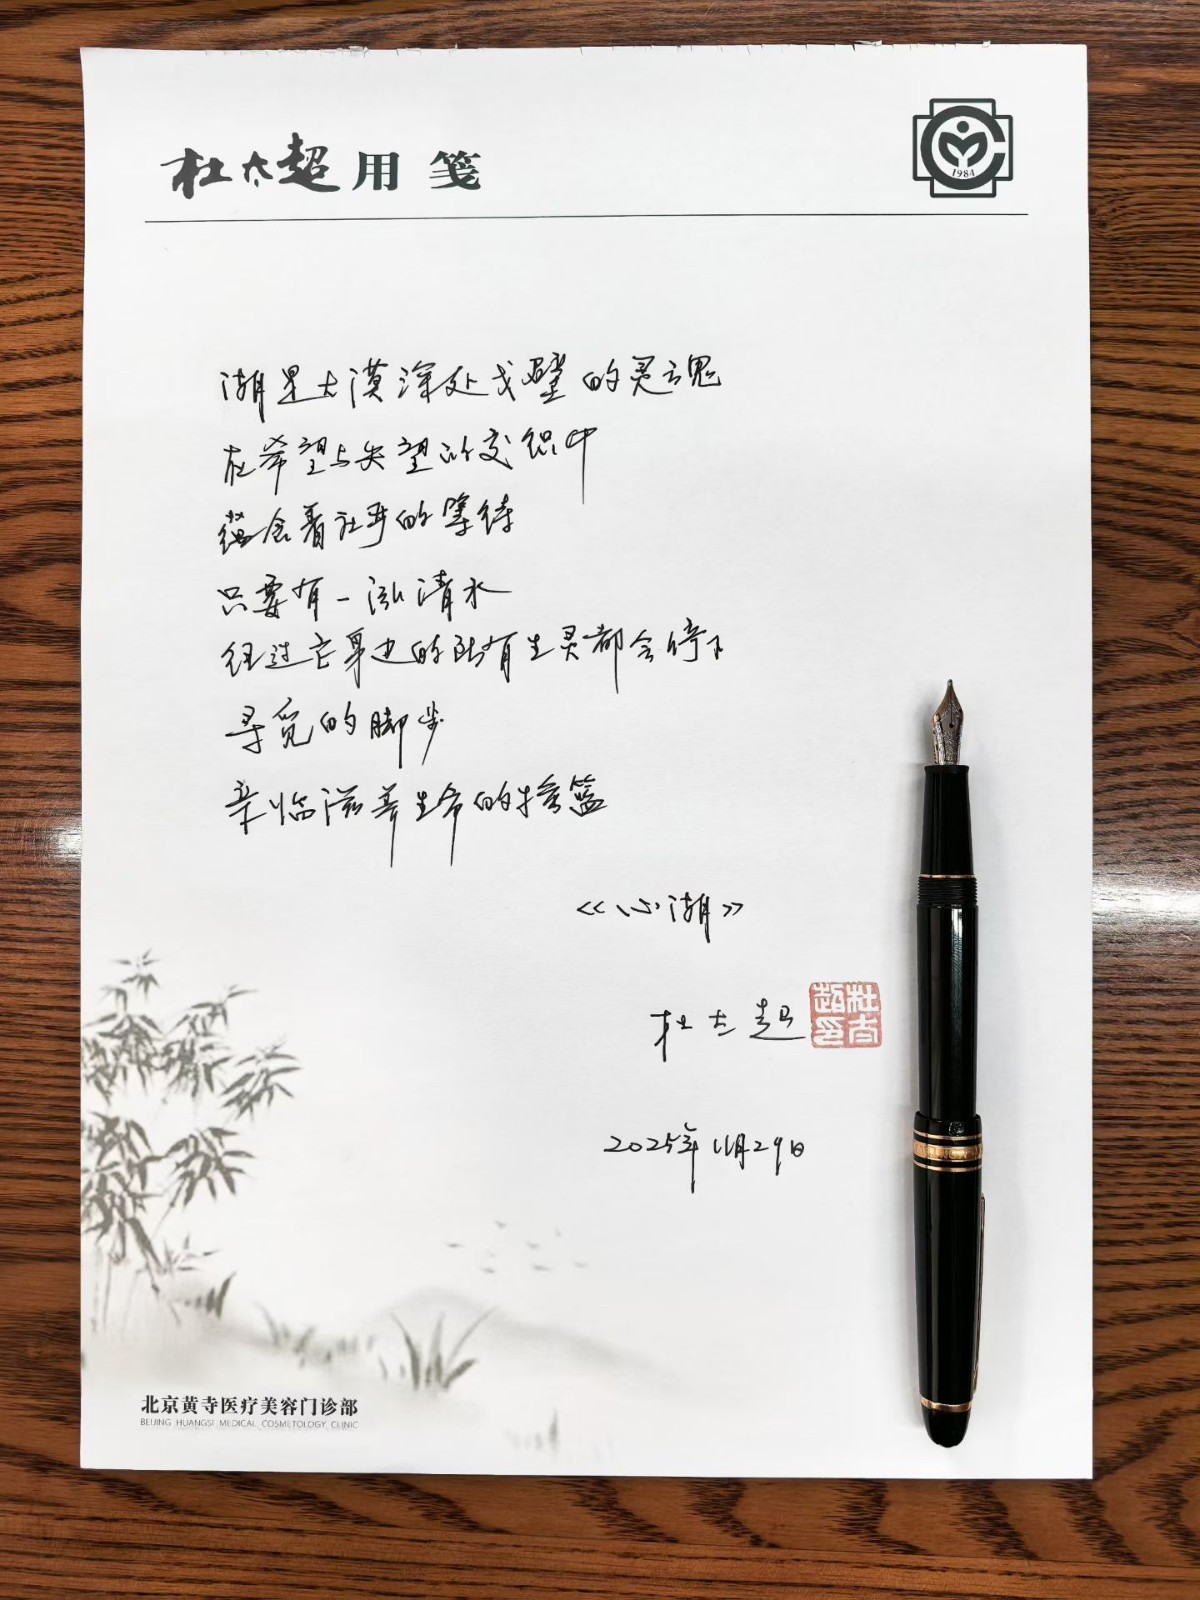 杜太超用笺
1984
湖是大漠深处戈壁的灵魂
在希望与失望的交织中
蕴含着社再的等待
只要有一泓清水
经过它身边的所有生灵都会停下
寻觅的脚步
亲临滋养生命的摇篮
《心湖》
杜太超
杜太超印
2025年11月29日
北京黄寺医疗美容门诊部
BEIJING HUANGSI MEDICAL COSMETOLOGY CLINIC